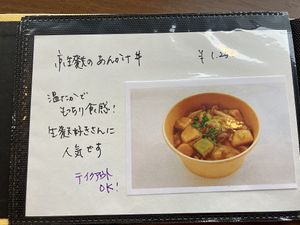 京生麩のあんかけ丼 ¥1,2
温たかで
もっちり食感!
生麩好きさんに
人気です
テイクアウト
OK!